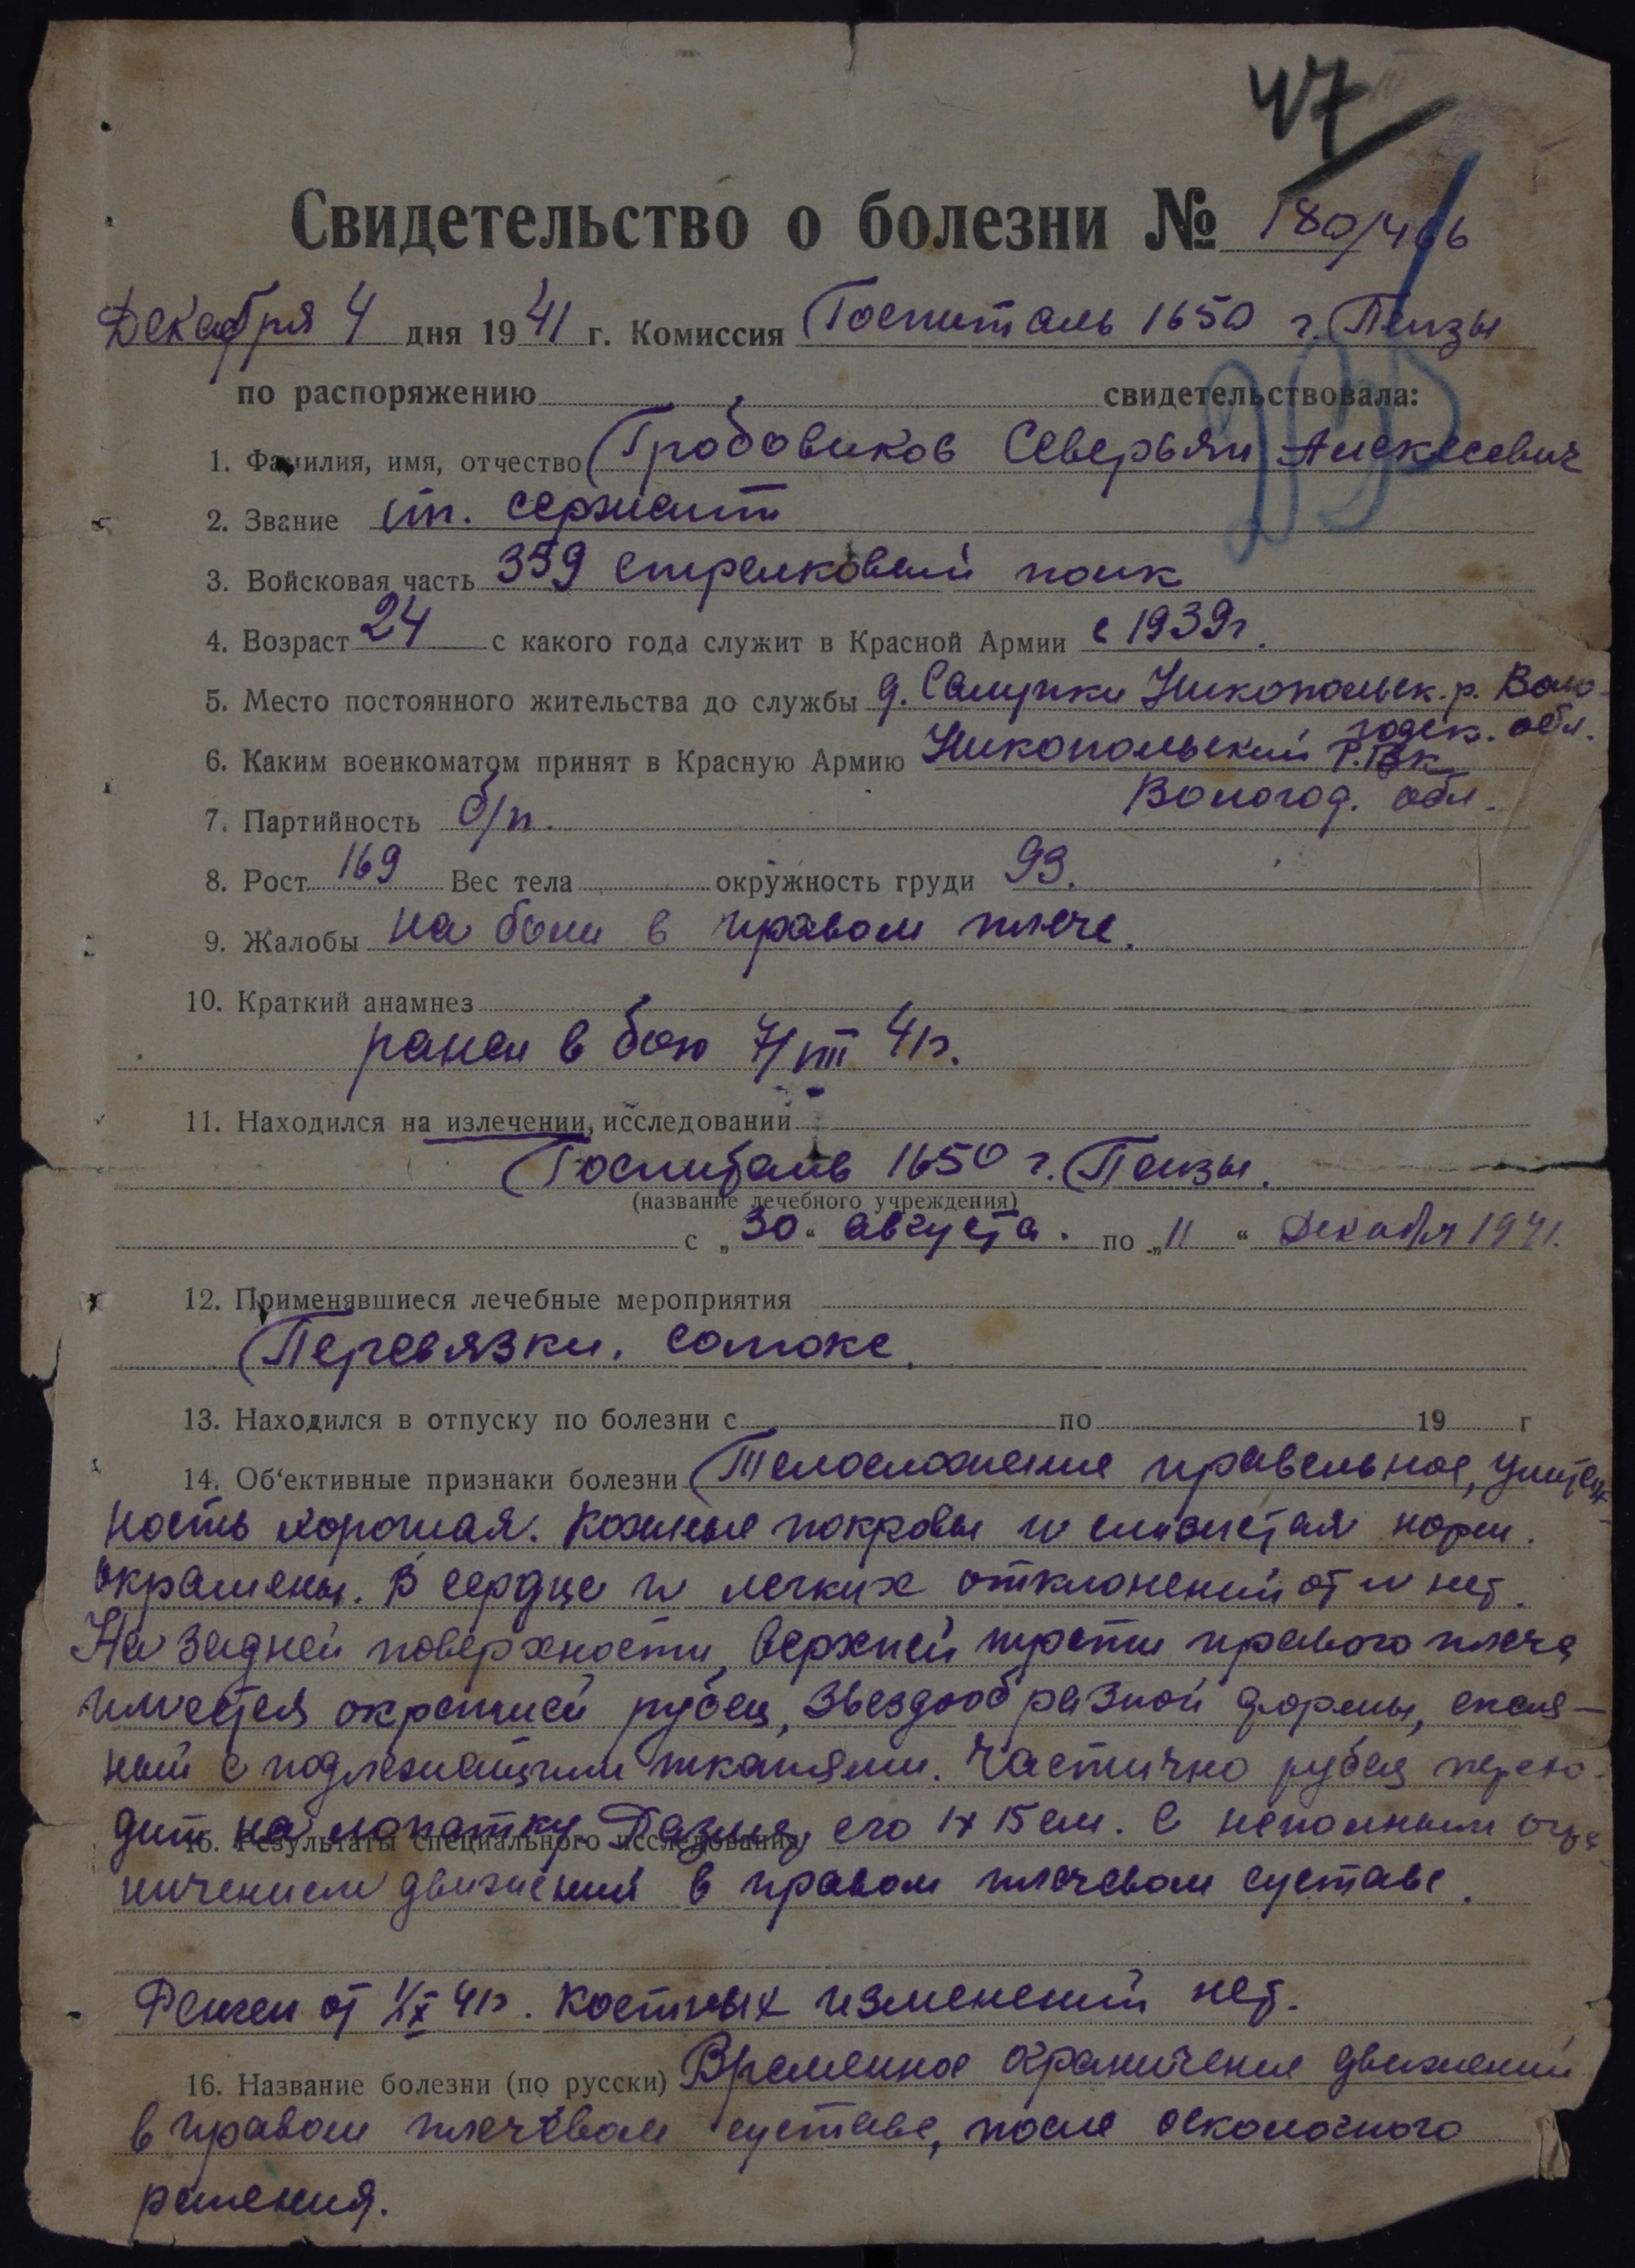 47
Свидетельство о болезни № 180/466
Декабря 4 дня 1941 г. Комиссия Госпиталь 1650 г. Пензы
по распоряжению свидетельствовала:
1. Фамилия, имя, отчество Гробовиков Северьян Алексеевич
2. Звание ст. сержант
3. Войсковая часть 359 стрелковый полк
4. Возраст 24 с какого года служит в Красной Армии с 1939г.
5. Место постоянного жительства до службы д. Никопольск. р. Воло-
годск. обл.
6. Каким военкоматом принят в Красную Армию Никопольский Р.В.к
Вологод. обл.
7. Партийность б/п.
8. Рост 169 Вес тела окружность груди 93.
9. Жалобы на боли в правом плече.
10. Краткий анамнез
ранен в бою 7/VIII 41г.
11. Находился на излечении, исследовании
Госпиталь 1650 г. Пензы.
(название лечебного учреждения)
с „30“ августа. по „11“ Декабря 1941.
12. Применявшиеся лечебные мероприятия
Перевязки. солюкс.
13. Находился в отпуску по болезни с по 19 г
14. Об'ективные признаки болезни Телосложение правельное, упитан-
ность хорошая. Кожные покровы и слизистая норм.
окрашены. В сердце и легких отклонений от N нет.
На задней поверхности, верхней трети правого плеча
имеется окрепший рубец, звездообразной формы, спаян-
ный с подлежащими тканями. Частично рубец перехо-
дит на лопатку. Размер его 1х15см. С неполным огра
15. Результаты специального исследования
ничением движений в правом плечевом суставе.
Ренген от 1/X 41г. Костных изменений нет.
16. Название болезни (по русски) Временное ограничение движений
в правом плечевом суставе, после осколочного
ранения.